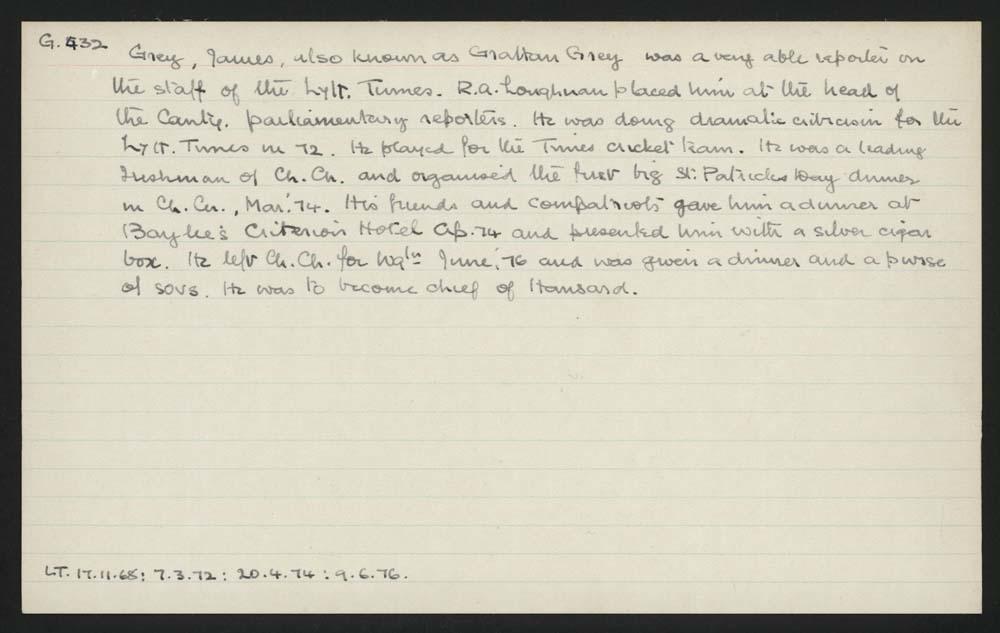 G.432
Grey, James, also known as Grattan Grey was a very able reporter on
the staff of the Lytt. Times. R.A. Loughnan placed him at the head of
the Canty. parliamentary reporters. He was doing dramatic criticism for the
Lytt. Times in 72. He played for the Times cricket team. He was a leading
Irishman of Ch.Ch. and organised the first big St. Patricks Day dinner
in Ch.Ch., Mar. '74. His friends and compatriots gave him a dinner at
Baylee's Criterion Hotel Ap. 74 and presented him with a silver cigar
box. He left Ch.Ch. for Wgtn June, '76 and was given a dinner and a purse
of sovs. He was to become chief of Hansard.
LT. 17.11.68: 7.3.72: 20.4.74: 9.6.76.